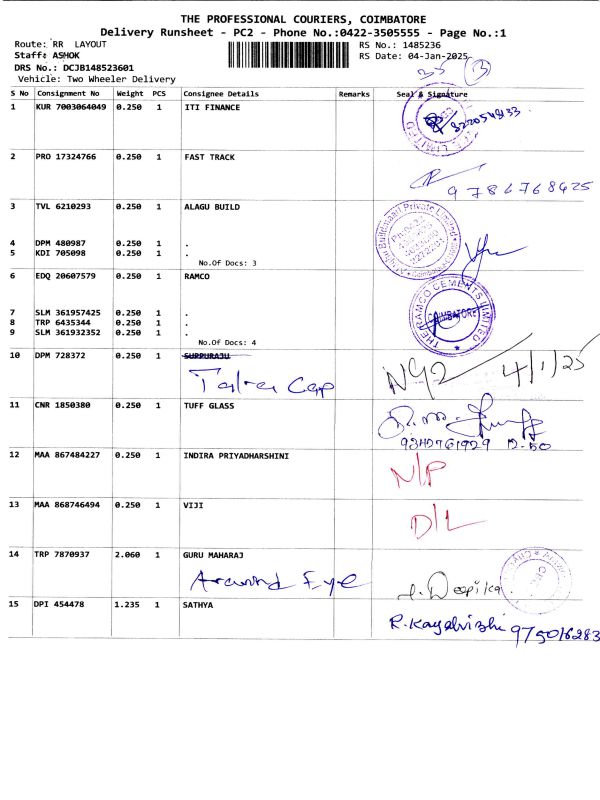 THE PROFESSIONAL COURIERS, COIMBATORE
Delivery Runsheet - PC2 - Phone No.:0422-3505555 - Page No.:1
Route: RR LAYOUT
RS No.: 1485236
Staff: ASHOK
RS Date: 04-Jan-2025
DRS No.: DCJB148523601
Vehicle: Two Wheeler Delivery
35 (3)
S No Consignment No Weight PCS Consignee Details Remarks Seal & Signature
1 KUR 7003064049 0.250 1 ITI FINANCE
2 PRO 17324766 0.250 1 FAST TRACK
9786768425
3 TVL 6210293 0.250 1 ALAGU BUILD
4 DPM 480987 0.250 1 .
5 KDI 705098 0.250 1 .
No.Of Docs: 3
6 EDQ 20607579 0.250 1 RAMCO
THE RAMCO CEMENTS LIMITED
COIMBATORE
7 SLM 361957425 0.250 1 .
8 TRP 6435344 0.250 1 .
9 SLM 361932352 0.250 1 .
No.Of Docs: 4
10 DPM 728372 0.250 1 SUPPURAJU
4/1/25
11 CNR 1850380 0.250 1 TUFF GLASS
12 MAA 867484227 0.250 1 INDIRA PRIYADHARSHINI
N/P
13 MAA 868746494 0.250 1 VIJI
D/L
14 TRP 7870937 2.060 1 GURU MAHARAJ
Aravind Eye
Deepika
15 DPI 454478 1.235 1 SATHYA
R. Kayalvizhi 975016283